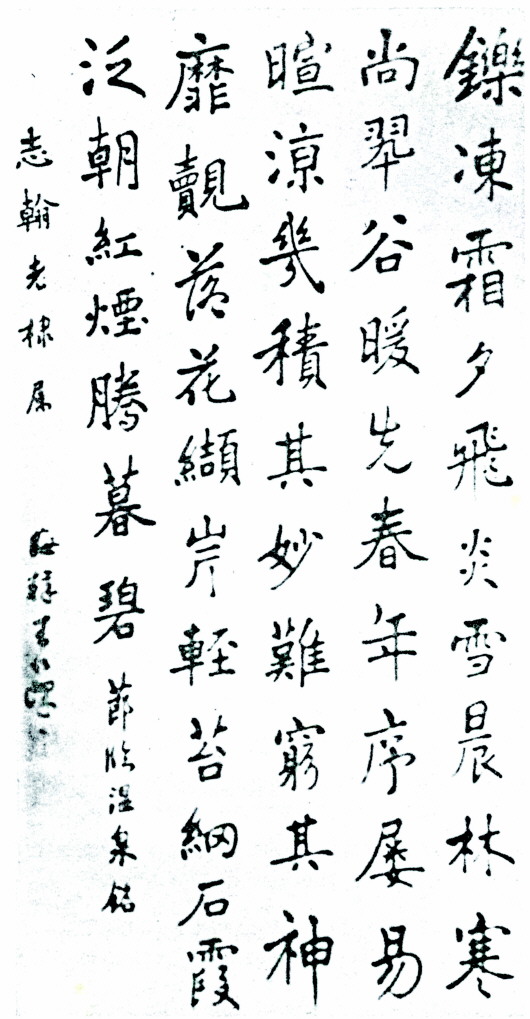 鑠凍霜夕飛炎雪晨林寒
尚翠谷暖先春年序屡易
暄涼幾積其妙難窮其神
靡覿落花纈岸輕苔網石霞
泛朝紅煙騰暮碧 節臨温泉銘
志翰老棣属